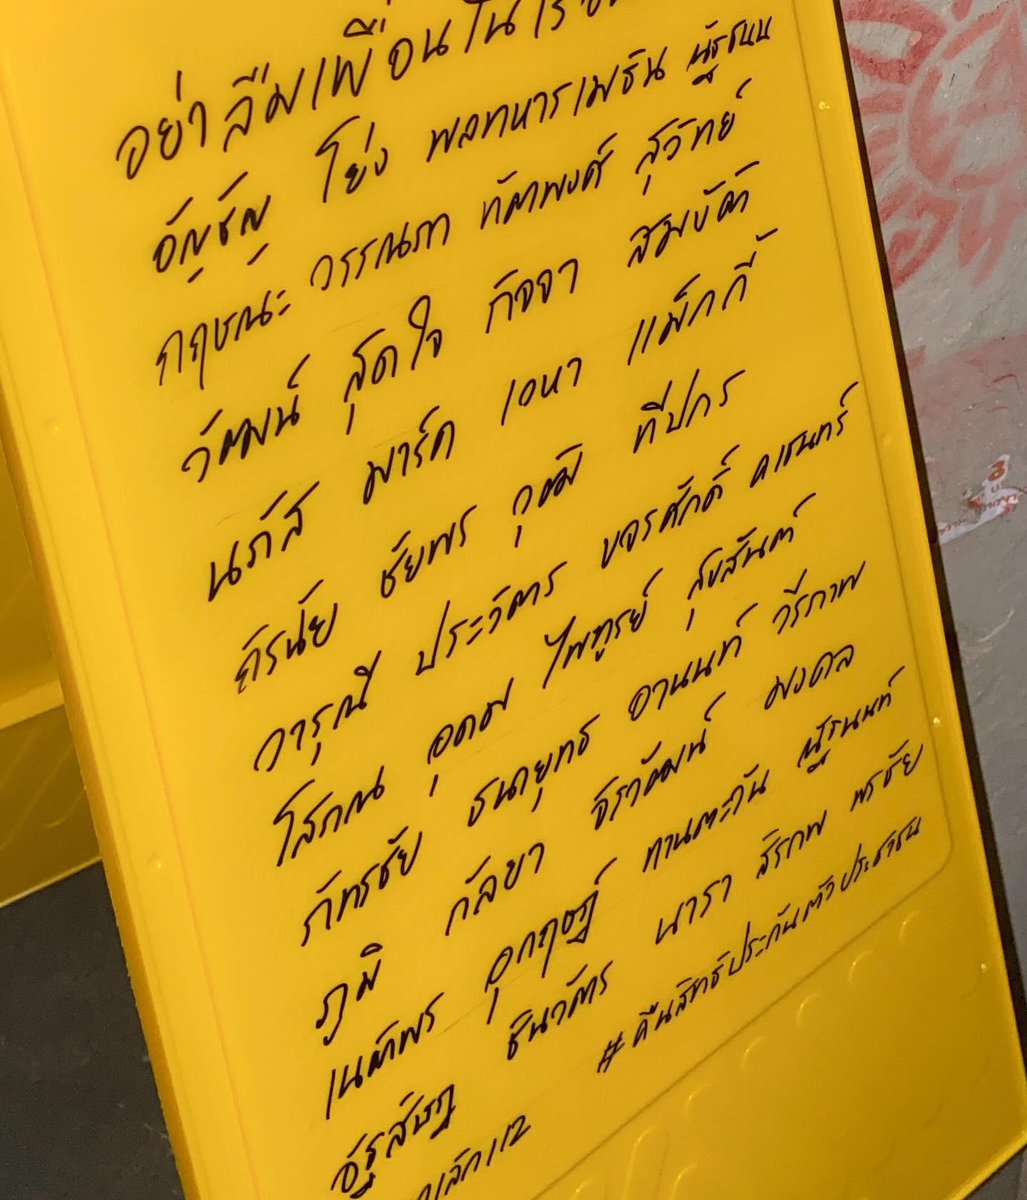 อย่าลืมเพื่อนใน
อัญชัญ โย่ง พลทหารเมธิน ณัฐชนน
กฤษณะ วรรณภา ทัตพงศ์ สุวิทย์
วัฒน์ สุดใจ กิจจา สมบัติ
นภัส มาร์ค เวหา แม็กกี้
ถิรนัย ชัยพร วุฒิ ทีปกร
วารุณี ประวัตร ขจรศักดิ์ คเชนทร์
โสภณ อุดม ไพฑูรย์ สุขสันต์
ภัทรชัย ธนายุทธ อานนท์ วีรภาพ
ภูมิ กัลยา จิรวัฒน์ มงคล
เนติพร อุกฤษฏ์ ทานตะวัน ณัฐนนท์
อัฐสิษฎ ชินวัตร นารา สิรภพ พรชัย
#คืนสิทธิประกันตัวประชาชน
ยกเลิก112